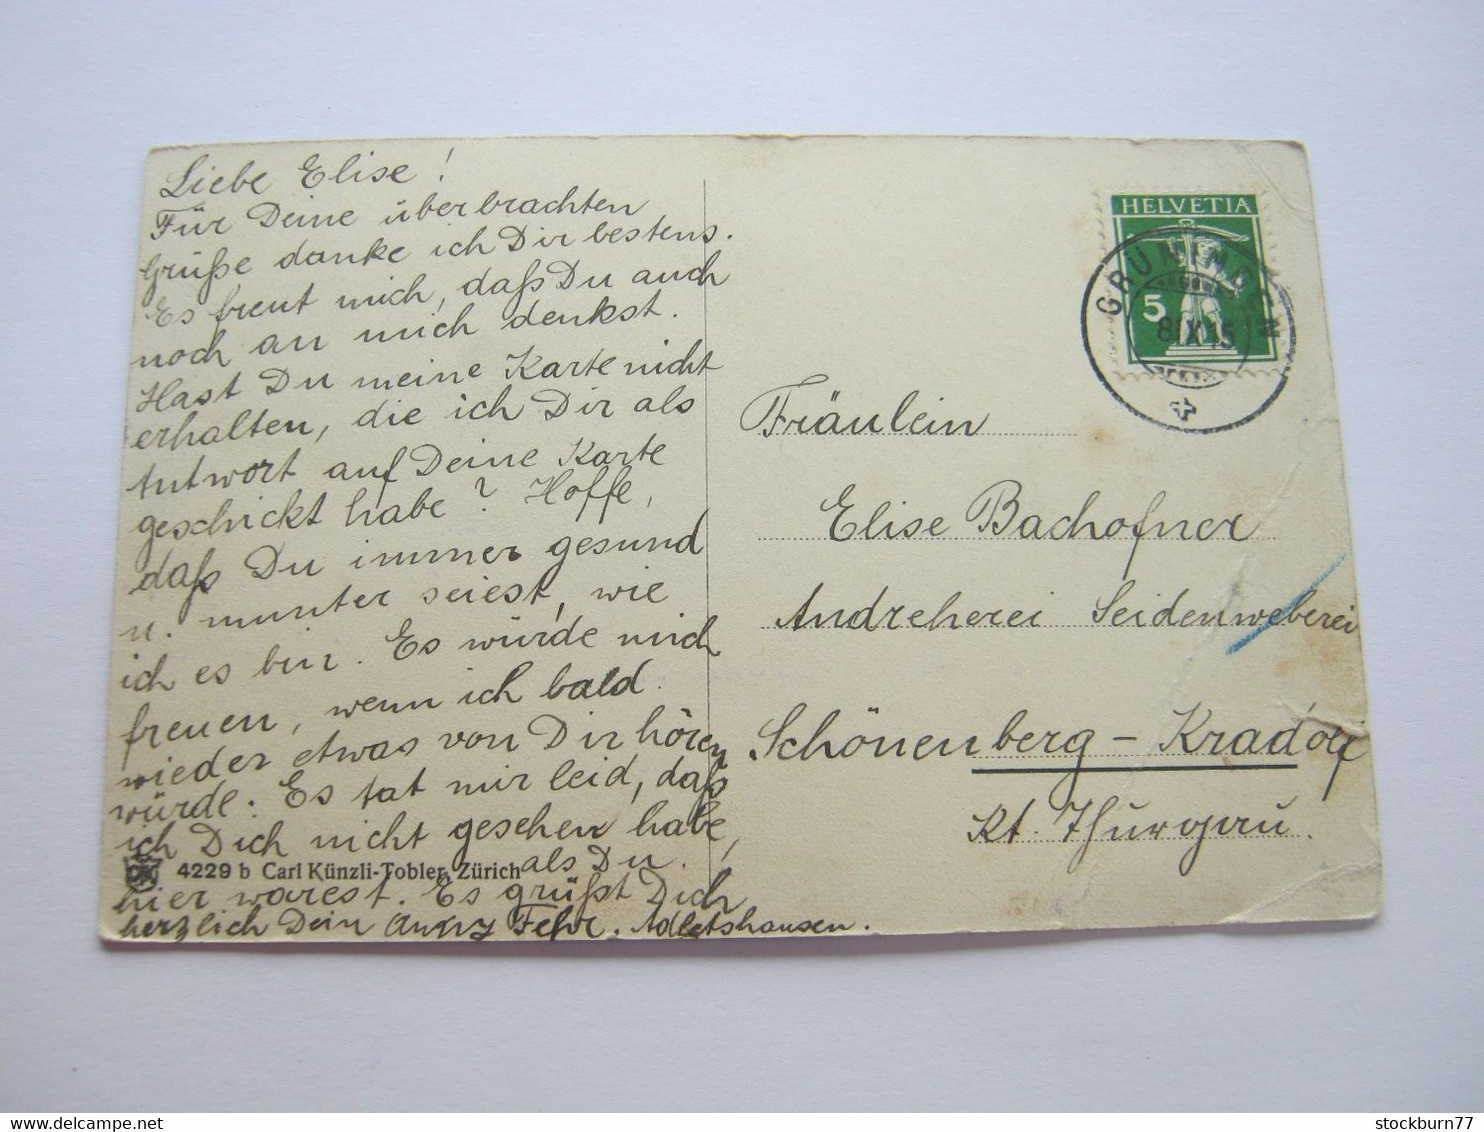 Liebe Elise!
Für Deine überbrachten
Grüße danke ich Dir bestens.
Es freut mich, daß Du auch
noch an mich denkst.
Hast Du meine Karte nicht
erhalten, die ich Dir als
Antwort auf Deine Karte
geschickt habe? Hoffe,
daß Du immer gesund
u. munter seiest, wie
ich es bin. Es würde mich
freuen, wenn ich bald
wieder etwas von Dir hören
würde. Es tat mir leid, daß
ich Dich nicht gesehen habe,
als Du
hier warest. Es grüßt Dich
herzlich Dein Fehr. Adletshausen.
4229 b Carl Künzli-Tobler, Zürich
HELVETIA
5
GRÜNINGEN
8.IX.15
Fräulein
Elise Bachofner
Andreherei Seidenweberei
Schönenberg - Kradolf
Kt. Thurgau.
stockburn77